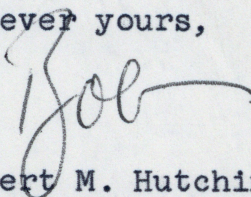 ever yours,
Bob
ert M. Hutchi